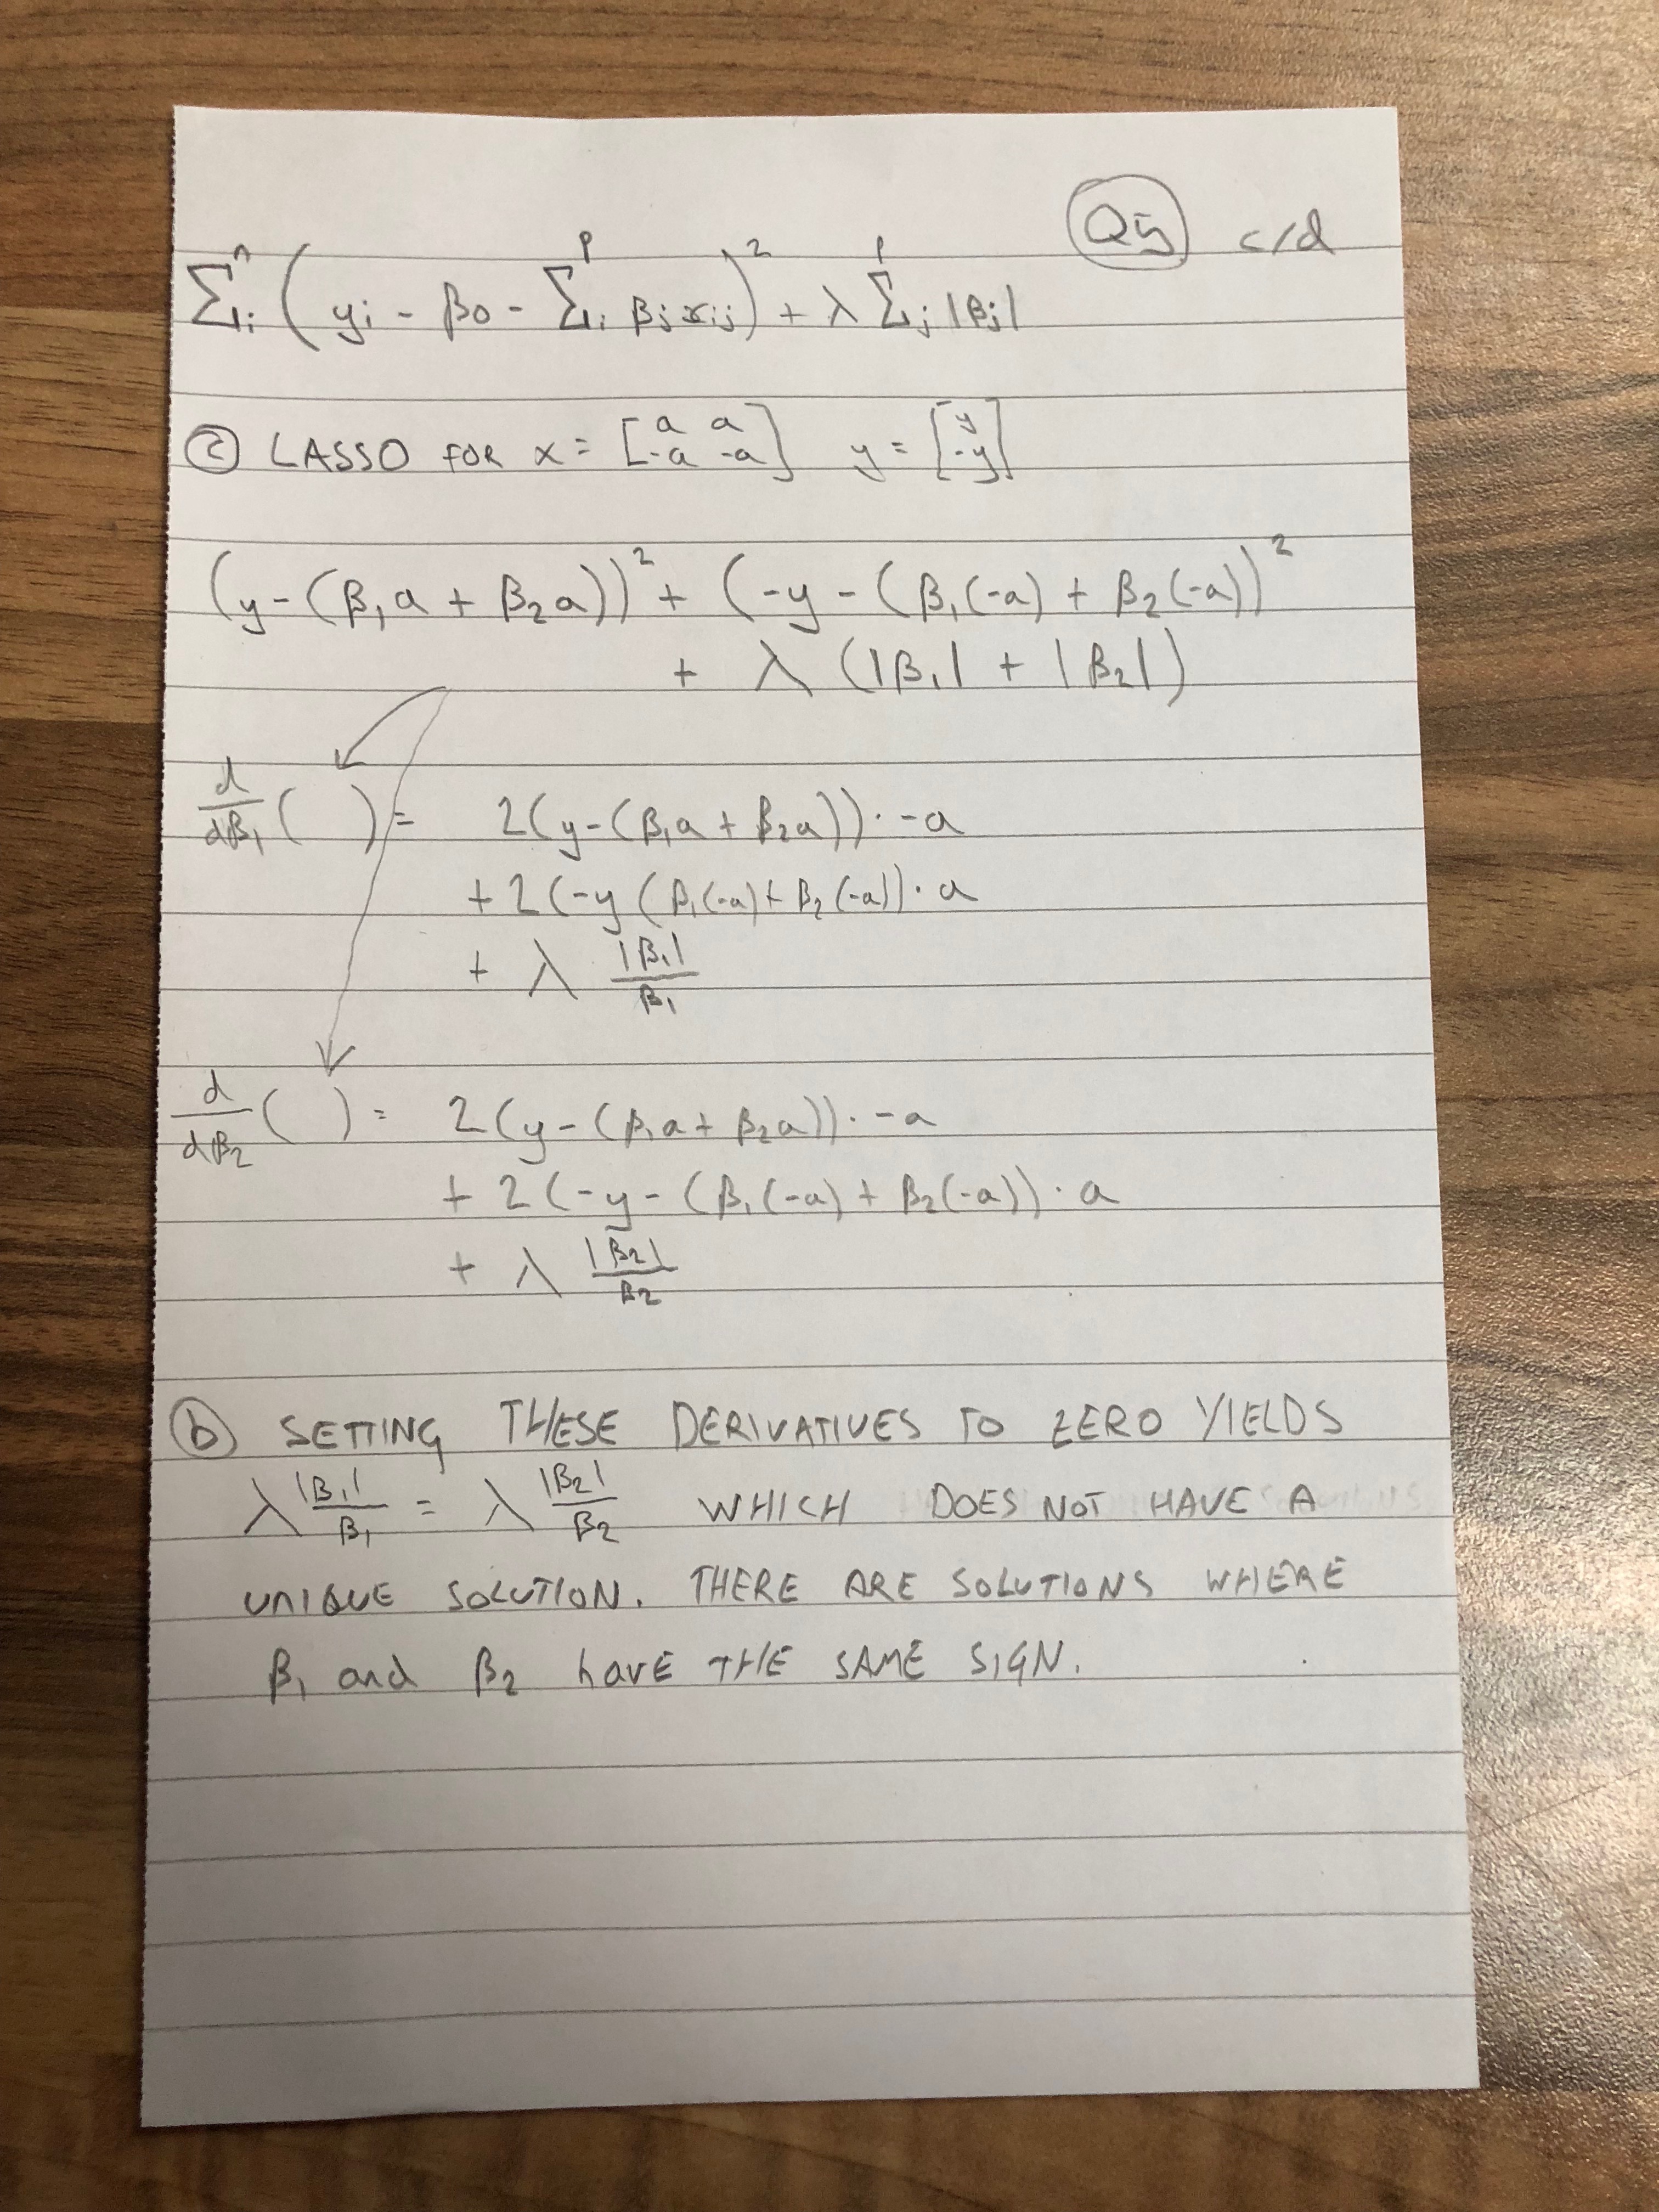 Q5 c/d
∑ᵢⁿ ( yᵢ - β0 - ∑ᵢᵖ βⱼxᵢⱼ )² + λ ∑ⱼᵖ |βⱼ|
ⓒ LASSO FOR x = [a a; -a -a] y = [y; -y]
(y-(β₁a + β₂a))² + (-y - (β₁(-a) + β₂(-a))²
+ λ (|β₁| + |β₂|)
d/dβ₁ ( ) = 2(y-(β₁a + β₂a))· -a
+ 2(-y (β₁(-a) + β₂(-a))· a
+ λ |β₁|/β₁
d/dβ₂ ( ) = 2(y-(β₁a + β₂a))· -a
+ 2(-y-(β₁(-a) + β₂(-a))· a
+ λ |β₂|/β₂
ⓑ SETTING THESE DERIVATIVES TO ZERO YIELDS
λ |β₁|/β₁ = λ |β₂|/β₂ WHICH DOES NOT HAVE A
UNIQUE SOLUTION. THERE ARE SOLUTIONS WHERE
β₁ and β₂ havE THE SAME SIGN.